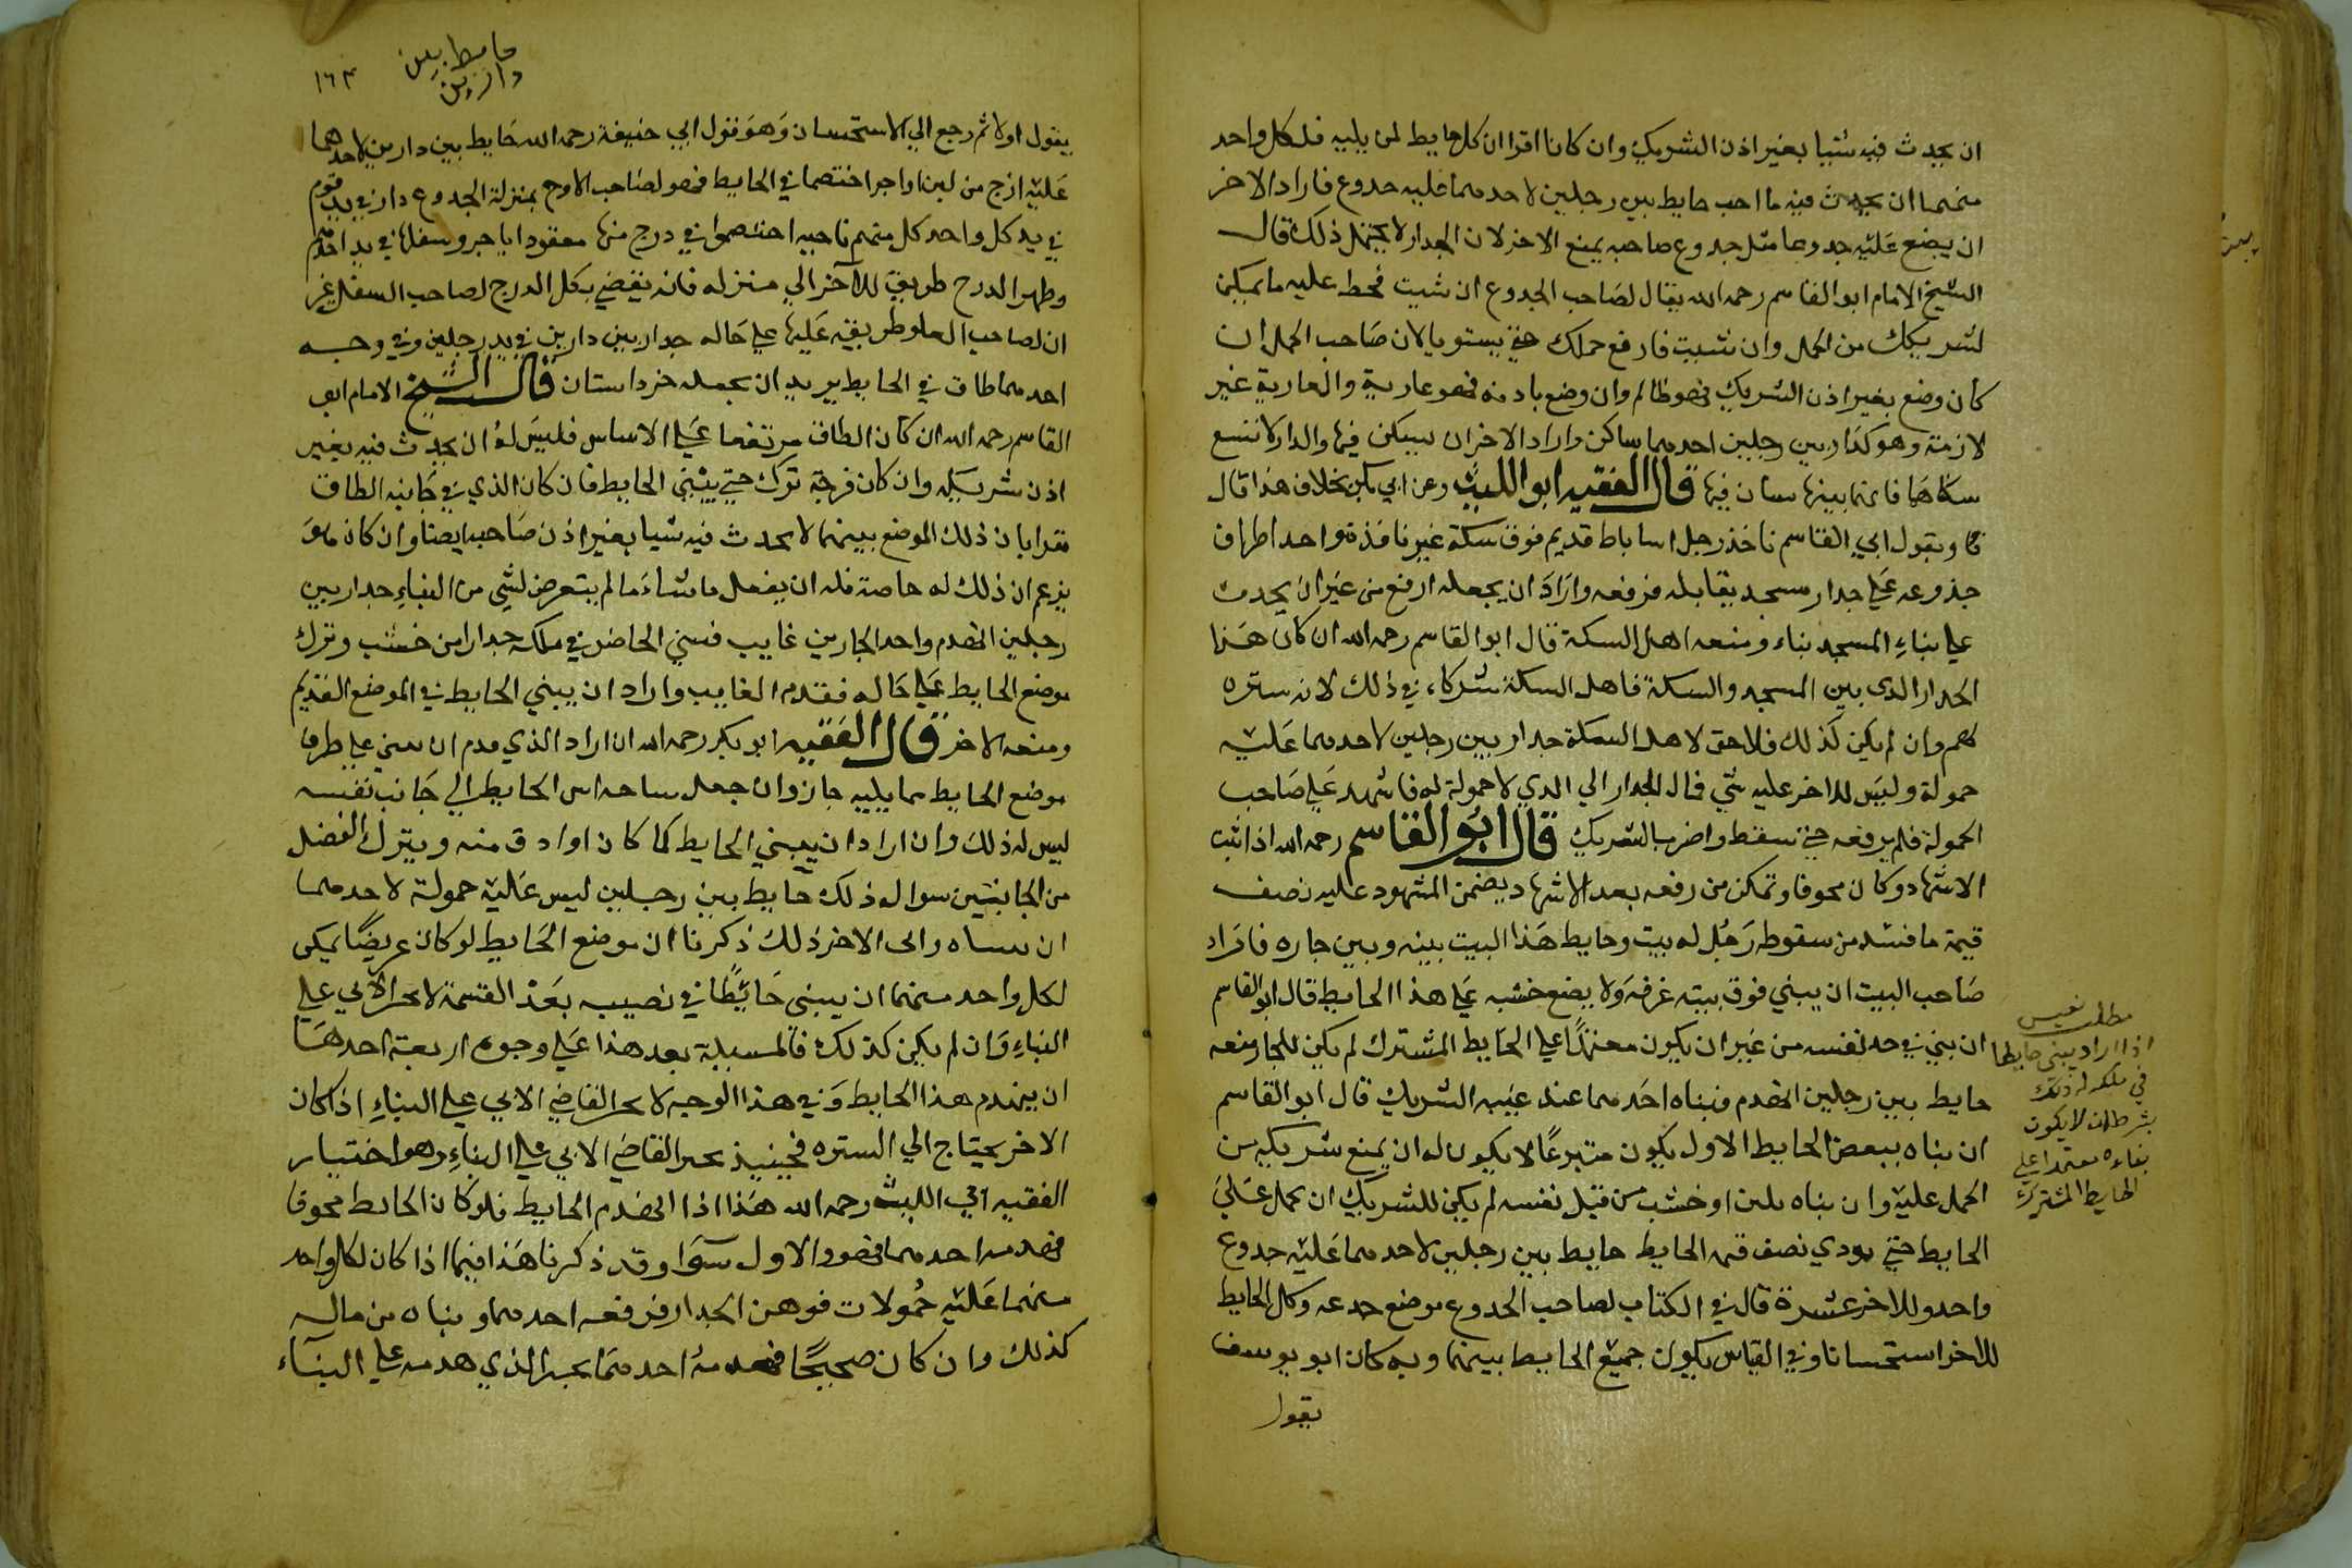 ان يحدث فيه شيا بغير اذن الشريك وان كانا اقرا ان كل حايط لمن يليه فلكل واحد
منهما ان يحدث فيه ما احب حايط بين رجلين لاحدهما عليه جدوع فاراد الاخر
ان يضع عليه جدوعا مثل جدوع صاحبه يمنع الاخر لان الجدار لا يحتمل ذلك قال
الشيخ الامام ابو القاسم رحمه الله يقال لصاحب الجدوع ان شيت فحط عليه ما يمكن
لشريكك من الحمل وان شيت فارفع حملك حتى يستويا لان صاحب الحمل ان
كان وضع بغير اذن الشريك فهو ظالم وان وضع باذنه فهو عارية والعارية غير
لازمة وهو كدار بين رجلين احدهما ساكن واراد الاخر ان يسكن فيها والدار لا تسع
سكناهما فانهما يتهايئان فيها قال الفقيه ابو الليث وعن ابي بكر بخلاف هذا قال
وبقول ابي القاسم ناخذ رجل له ساباط قديم فوق سكة غير نافذة واحد اطراف
جذوعه على جدار مسجد يقابله فرفعه واراد ان يجعله ارفع من غير ان يحدث
على بناء المسجد بناء ومنعه اهل السكة قال ابو القاسم رحمه الله ان كان هذا
الجدار الذى بين المسجد والسكة فاهل السكة شركاء في ذلك لانه ستره
لهم وان لم يكن كذلك فلا حق لاهل السكة جدار بين رجلين لاحدهما عليه
حمولة وليس للاخر عليه شي فمال الجدار الي الذي لا حمولة له فاشهد على صاحب
الحمولة فلم يرفعه حتى سقط واضر بالشريك قال ابو القاسم رحمه الله اذا ثبت
الاشهاد وكان مخوفا وتمكن من رفعه بعد الاشهاد يضمن المشهود عليه نصف
قيمة ما فسد من سقوطه رجل له بيت وحايط هذا البيت بينه وبين جاره فاراد
صاحب البيت ان يبني فوق بيته غرفة ولا يضع خشبه على هذا الحايط قال ابو القاسم
ان بني في حد نفسه من غير ان يكون معتمدا على الحايط المشترك لم يكن للجار منعه
حايط بين رجلين انهدم فبناه احدهما عند غيبة الشريك قال ابو القاسم
ان بناه ببعض الحايط الاول يكون متبرعا لا يكون له ان يمنع شريكه من
الحمل عليه وان بناه بلبن او خشب من قبل نفسه لم يكن للشريك ان يحمل على
الحايط حتى يودي نصف قيمة الحايط حايط بين رجلين لاحدهما عليه جدوع
واحد وللاخر عشرة قال في الكتاب لصاحب الجدوع موضع جدعه وكل الحايط
للاخر استحسانا وفي القياس يكون جميع الحايط بينهما وبه كان ابو يوسف
يقول
مطلب نفيس
اذا اراد يبني حايطا
في ملكه له ذلك
بشرط ان لا يكون
بناءه معتمدا على
الحايط المشترك
حايط بين
دارين
١٦٣
يقول اولا ثم رجع الي الاستحسان وهو قول ابي حنيفة رحمه الله حايط بين دارين لاحدهما
عليه ازج من لبن او اجر اختصما في الحايط فهو لصاحب الازج بمنزلة الجدوع دار في يد قوم
في يد كل واحد كل منهم ناحيه اختصموا في درج منها معقود باجر وسفلها في يد احدهم
وظهر الدرج طريق للاخر الي منزله فانه يقضي بكل الدرج لصاحب السفل غير
ان لصاحب العلو طريقه عليها على حاله جدار بين دارين في يد رجلين وفي وجه
احدهما طاق في الحايط يريد ان يجعله خردستان قال الشيخ الامام ابو
القاسم رحمه الله ان كان الطاق مرتفعا على الاساس فليس له ان يحدث فيه بغير
اذن شريكه وان كان فرجة ترك حتى يبني الحايط فان كان الذي في جانبه الطاق
مقرا بان ذلك الموضع بينهما لا يحدث فيه شيا بغير اذن صاحبه ايضا وان كان هو
يزعم ان ذلك له خاصة فله ان يفعل ما شاء ما لم يتعرض لشي من البناء جدار بين
رجلين انهدم واحد الجارين غايب فبني الحاضر في ملكه جدارا من خشب وترك
موضع الحايط على حاله فقدم الغايب واراد ان يبني الحايط في الموضع القديم
ومنعه الاخر قال الفقيه ابو بكر رحمه الله ان اراد الذي قدم ان يبني على طرف
موضع الحايط مما يليه جاز وان جعل ساحة اس الحايط الي جانب نفسه
ليس له ذلك وان اراد ان يبني الحايط كما كان او ادق منه ويترك الفضل
من الجانبين سوا له ذلك حايط بين رجلين ليس عليه حمولة لاحدهما
وابى الاخر ذلك ذكرنا ان موضع الحايط لو كان عريضا يمكن
لكل واحد منهما ان يبني حايطا في نصيبه بعد القسمة لا يجبر الابي على
البناء وان لم يكن كذلك فالمسيلة بعد هذا على وجوه اربعة احدها
ان ينهدم هذا الحايط وفي هذا الوجه لا يجبر القاضي الابي على البناء اذا كان
الاخر يحتاج الي الستره فحينيذ يجبر القاضي الابي على البناء وهو اختيار
الفقيه ابي الليث رحمه الله هذا اذا انهدم الحايط فلو كان الحايط مخوفا
فهدمه احدهما فهو والاول سوا وقد ذكرنا هذا فيما اذا كان لكل واحد
منهما عليه حمولات فوهن الجدار فرفعه احدهما وبناه من ماله
كذلك وان كان صحيحا فهدمه احدهما يجبر الذي هدمه على البناء